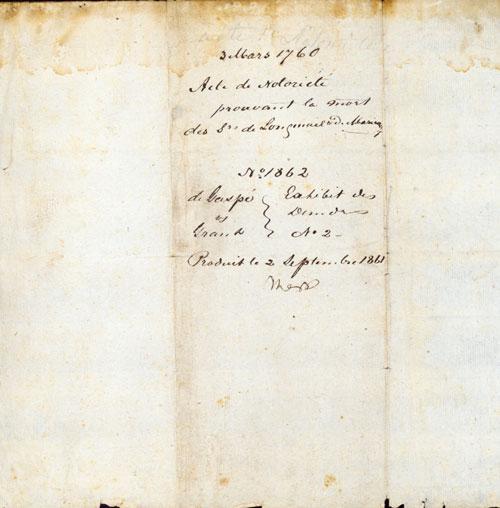 3 Mars 1760
Acte de Notoriété
prouvant la mort
des Srs de Longueuil &
No 1862
de Gaspé Exhibit des
vs Demdrs
Grand No 2
Produit le 2 Septembre 1861